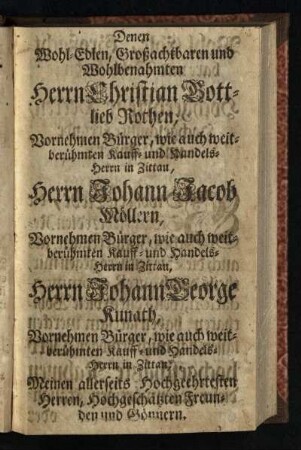 Denen
Wohl-Edlen, Großachtbaren und
Wohlbenahmten
Herrn Christian Gott-
lieb Nothen,
Vornehmen Bürger, wie auch weit-
berühmten Kauff- und Handels-
Herrn in Zittau,
Herrn Johann Jacob
Möllern,
Vornehmen Bürger, wie auch weit-
berühmten Kauff- und Handels-
Herrn in Zittau,
Herrn Johann George
Kunath,
Vornehmen Bürger, wie auch weit-
berühmten Kauff- und Handels-
Herrn in Zittau,
Meinen allerseits Hochgeehrtesten
Herren, Hochgeschätzten Freun-
den und Gönnern.